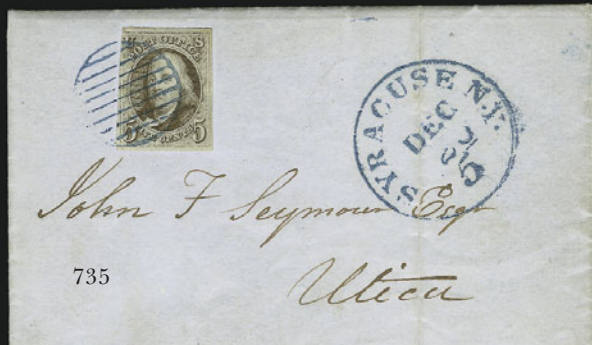 POST OFFICE
5 FIVE CENTS 5
SYRACUSE N.Y.
DEC
5
John F Seymour Esqr
Utica
735